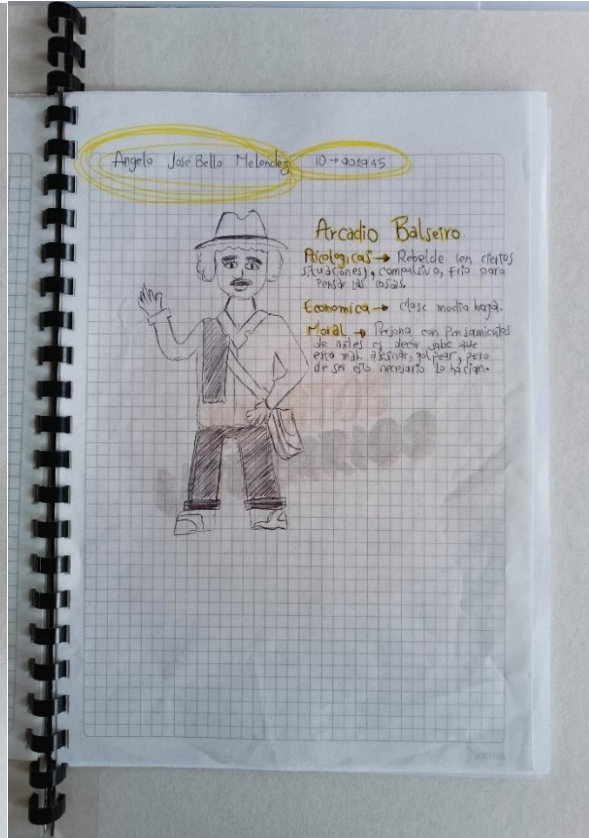 Angelo José Bello Melendez ID→902945
Arcadio Balseiro
Psicologicas → Rebelde (en ciertas
situaciones), compulsivo, frio para
Pensar las cosas.
Economica → clase media baja.
Moral → Persona con Pensamientos
de antes es decir sabe que
esta mal asesinar, golpear, pero
de ser esto necesario lo hacian.